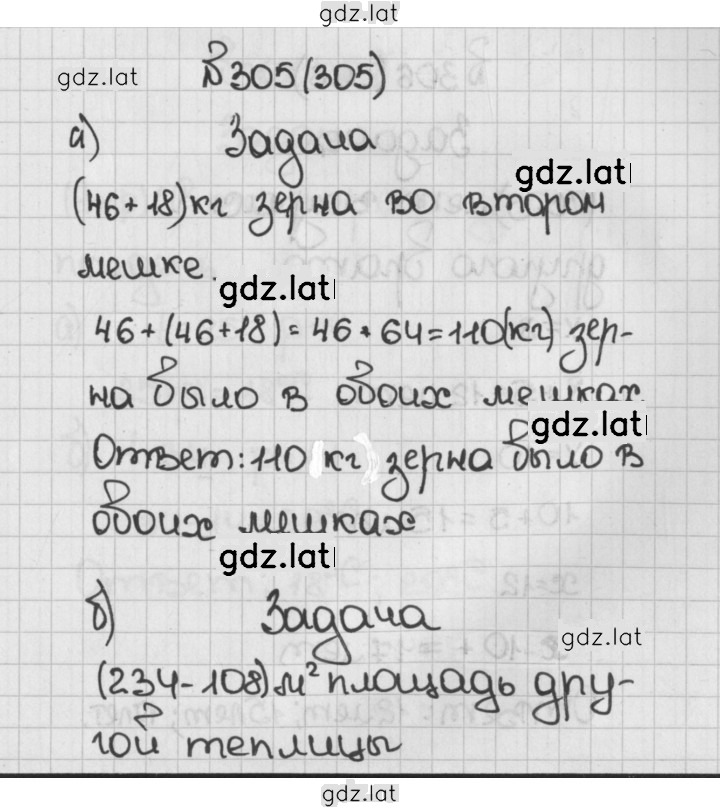 gdz.lat
№305(305)
gdz.lat
а) Задача
gdz.lat
(46+18)кг зерна во втором
мешке.
gdz.lat
46+(46+18)=46+64=110(кг) зер-
на было в обоих мешках
gdz.lat
Ответ: 110 кг зерна было в
обоих мешках
gdz.lat
б) Задача
gdz.lat
(234-108)м² площадь дру-
гой теплицы
gdz.lat